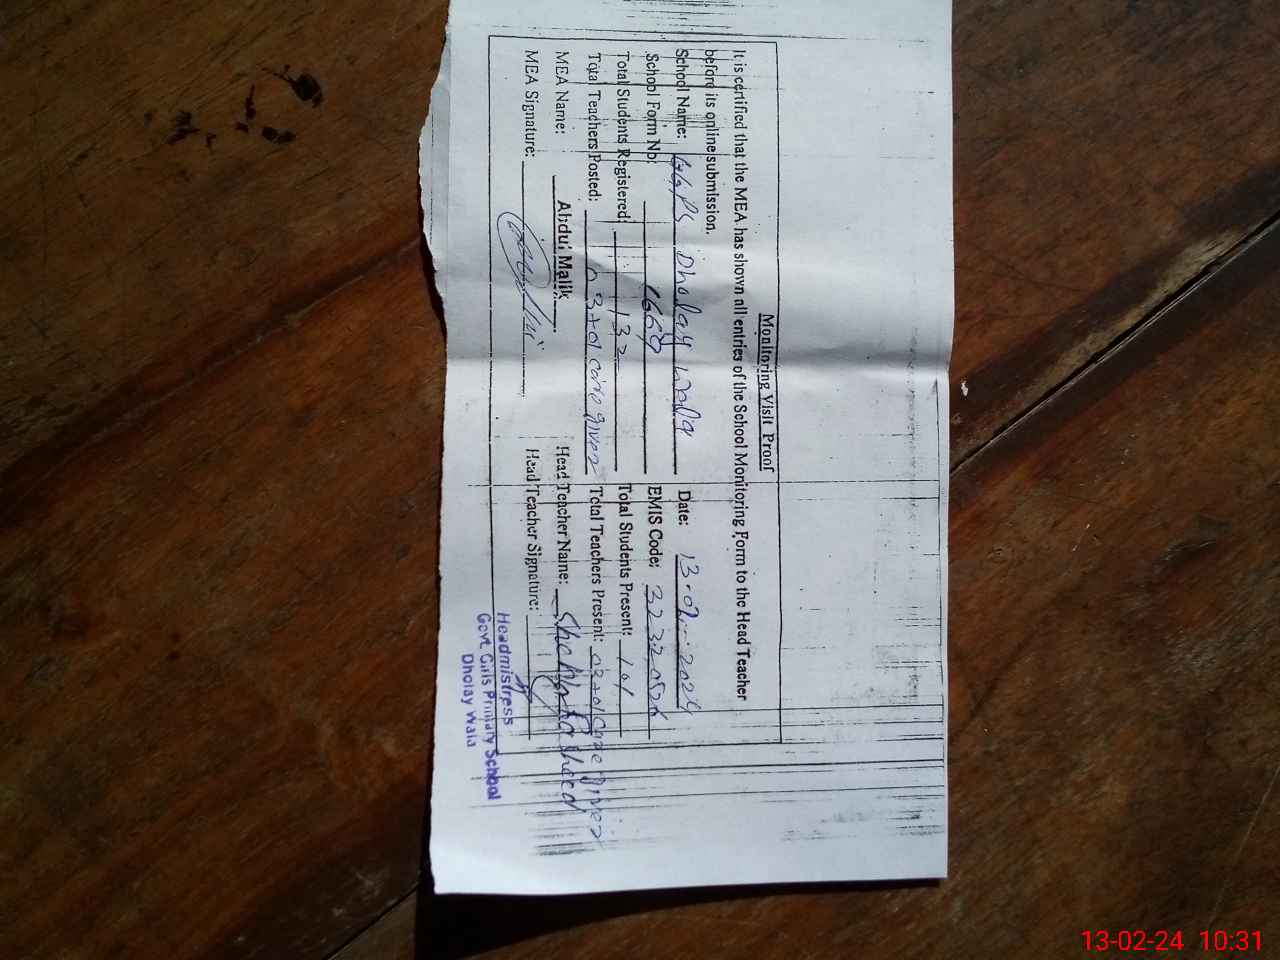 Monitoring Visit Proof
It is certified that the MEA has shown all entries of the School Monitoring Form to the Head Teacher
before its online submission.
School Name: GGPS Dholay Wala Date: 13-02-2024
School Form No: EMIS Code:
Total Students Registered: 132 Total Students Present: 101
Total Teachers Posted: 03+01 care giver Total Teachers Present: 03+01 care giver
MEA Name: Abdul Malik Head Teacher Name:
MEA Signature: Head Teacher Signature:
Headmistress
Govt Girls Primary School
Dholay Wala
13-02-24 10:31